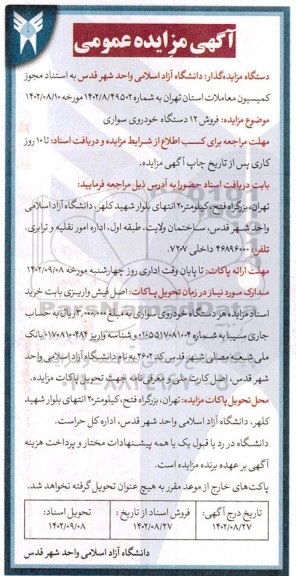 آگهی مزایده عمومی
دستگاه مزایده‌گذار: دانشگاه آزاد اسلامی واحد شهر قدس به استناد مجوز
کمیسیون معاملات استان تهران به شماره ۱۴۰۲/۸/۴۹۵۰۲ مورخه ۱۴۰۲/۰۸/۱۰
موضوع مزایده: فروش ۱۲ دستگاه خودروی سواری
مهلت مراجعه برای کسب اطلاع از شرایط مزایده و دریافت اسناد: تا ۱۰ روز
کاری پس از تاریخ چاپ آگهی مزایده.
بابت دریافت اسناد حضورا به آدرس ذیل مراجعه فرمایید:
تهران، بزرگراه فتح، کیلومتر۲۰ انتهای بلوار شهید کلهر، دانشگاه آزاد اسلامی
واحد شهر قدس، ساختمان ولایت، طبقه اول، اداره امور نقلیه و ترابری.
تلفن: ۴۶۸۹۶۰۰۰ داخلی ۷۲۰۷.
مهلت ارائه پاکات: تا پایان وقت اداری روز چهارشنبه مورخه ۱۴۰۲/۰۹/۰۸
مدارک مورد نیاز در زمان تحویل پاکات: اصل فیش واریزی بابت خرید
اسناد مزایده هر دستگاه خودروی سواری به مبلغ ۳,۰۰۰,۰۰۰ ریال به حساب
جاری سیبا به شماره و شناسه واریز بانک
ملی شعبه مصلی شهر قدس کد ۲۶۰۲ به نام دانشگاه آزاد اسلامی واحد
شهر قدس، اصل کارت ملی و معرفی‌نامه جهت تحویل پاکات مزایده.
محل تحویل پاکات مزایده: تهران، بزرگراه فتح، کیلومتر۲۰ انتهای بلوار شهید
کلهر، دانشگاه آزاد اسلامی واحد شهر قدس، اداره کل حراست.
دانشگاه در رد یا قبول یک یا همه پیشنهادات مختار و پرداخت هزینه
آگهی بر عهده برنده مزایده است.
پاکت‌های خارج از موعد مقرر به هیچ عنوان تحویل گرفته نخواهد شد.
تاریخ درج آگهی: فروش اسناد از تاریخ: تحویل اسناد:
۱۴۰۲/۰۸/۲۷ ۱۴۰۲/۰۸/۲۷ ۱۴۰۲/۰۹/۰۸
دانشگاه آزاد اسلامی واحد شهر قدس